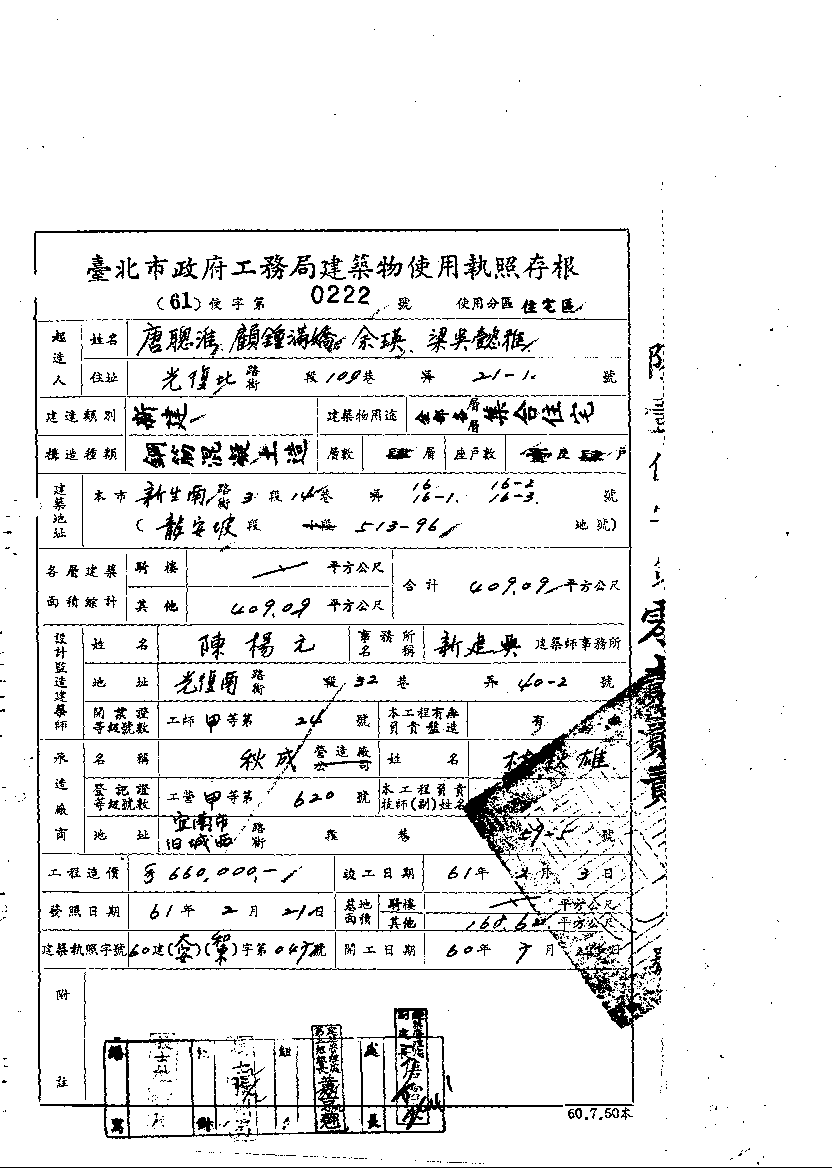 臺北市政府工務局建築物使用執照存根
(61)使字第 0222 號 使用分區 住宅區
起造人 姓名 唐聰 顧鍾滿嬌 余瑛、梁吳懿
住址 光復北 路街 段 109 巷 弄 21-1 號
建造類別 新建 建築物用途 全部各層 集合住宅
構造種類 鋼筋混凝土造 層數 層 座戶數 座 戶
建築地址 本市 新生南 路街 3 段 14 巷 弄 16 16-1 16-2 16-3 號
(龍安坡 段 小段 513-96 地號)
各層建築面積綜計 騎樓 平方公尺 合計 409.09 平方公尺
其他 409.09 平方公尺
設計監造建築師 姓名 陳楊元 事務所名稱 新建與 建築師事務所
地址 光復南 路街 段 32 巷 弄 40-2 號
開業證等級號數 工師 甲 等第 24 號 本工程有無負責監造 有
承造廠商 名稱 秋成 營造廠公司 姓名 秋雄
登記證等級號數 工營 甲 等第 620 號 本工程負責技師(副)姓名
地址 宜南市旧城西 路街 段 巷 59-5 號
工程造價 $660,000,- 竣工日期 61 年 2 月 3 日
發照日期 61 年 2 月 21 日 基地面積 騎樓 平方公尺
其他 平方公尺
建築執照字號 60 建(大安)( )字第 號 開工日期 60 年 月 日
附註
繕寫 校對 組 處長
60.7.50本